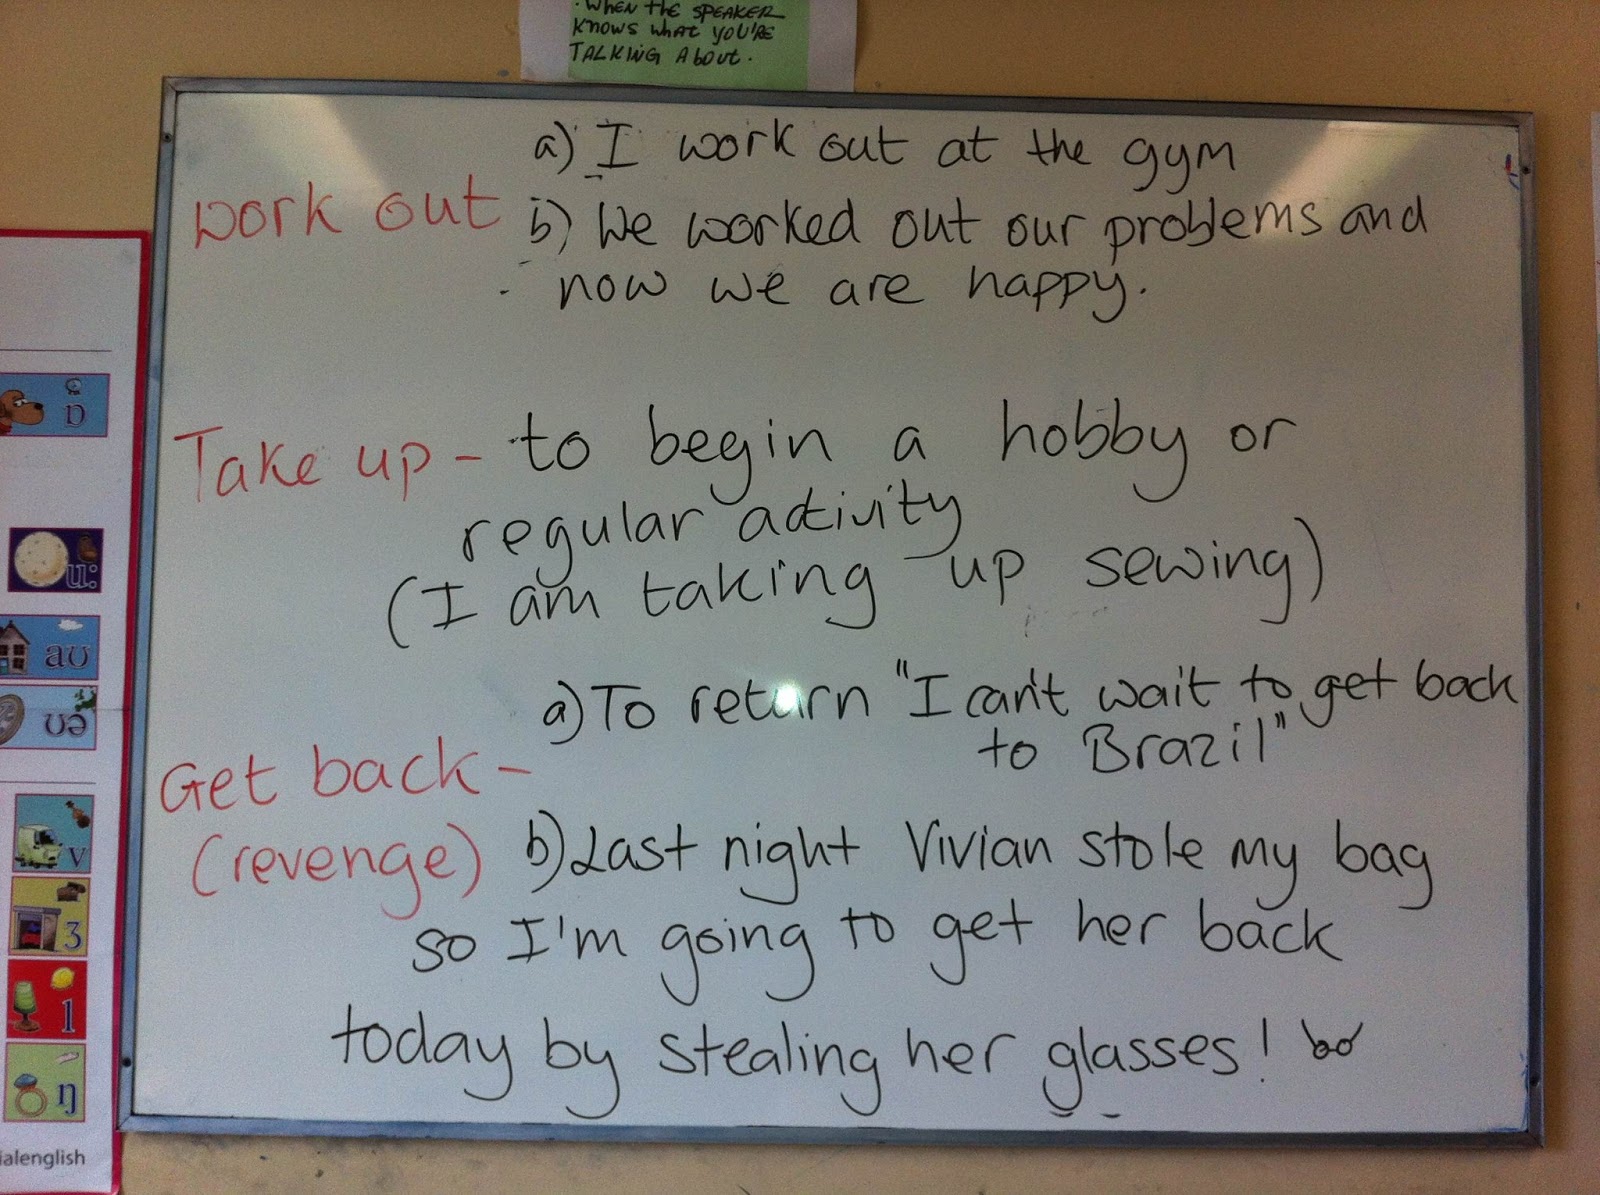 . WHEN the SPEAKER
KNOWS WHAT YOU'RE
TALKING About.
work out
a) I work out at the gym
b) We worked out our problems and
now we are happy.
Take up - to begin a hobby or
regular activity
(I am taking up sewing)
Get back -
(revenge)
a) To return "I can't wait to get back
to Brazil"
b) Last night Vivian stole my bag
so I'm going to get her back
today by stealing her glasses!
ɒ
u:
aʊ
ʊə
v
ʒ
l
ŋ
ialenglish